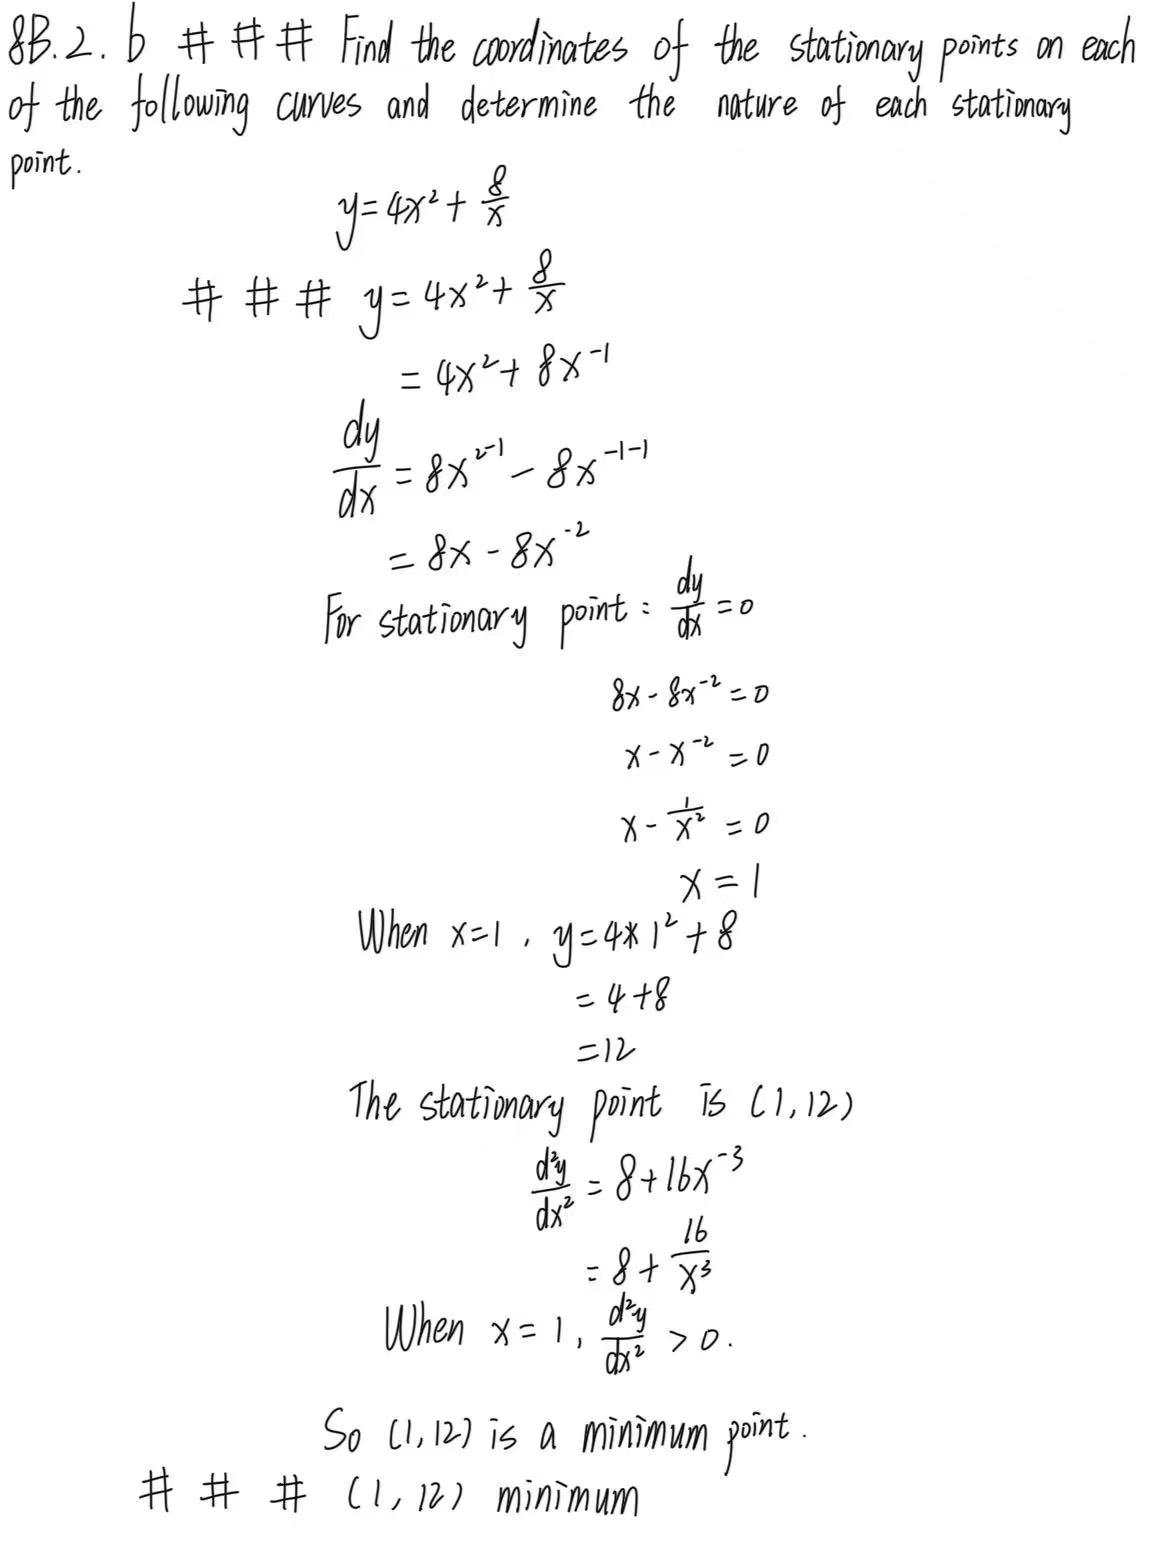 8B.2. b # # # Find the coordinates of the stationary points on each
of the following curves and determine the nature of each stationary
point.
y = 4x² + 8/x
# # # y = 4x² + 8/x
= 4x² + 8x⁻¹
dy/dx = 8x²⁻¹ - 8x⁻¹⁻¹
= 8x - 8x⁻²
For stationary point : dy/dx = 0
8x - 8x⁻² = 0
x - x⁻² = 0
x - 1/x² = 0
x = 1
When x=1 , y = 4* 1² + 8
= 4 + 8
= 12
The stationary point is (1, 12)
d²y/dx² = 8 + 16x⁻³
= 8 + 16/x³
When x = 1, d²y/dx² > 0.
So (1, 12) is a minimum point.
# # # (1, 12) minimum